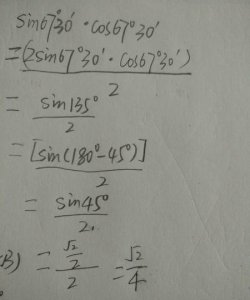 sin67°30′·cos67°30′
=(2sin67°30′·cos67°30′)/2
=sin135°/2
=[sin(180°-45°)]/2
=sin45°/2.
B) =(√2/2)/2=√2/4